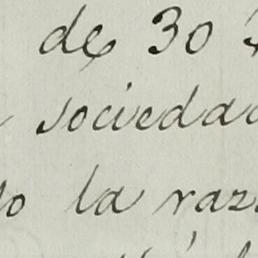 de 30
socieda
la raz